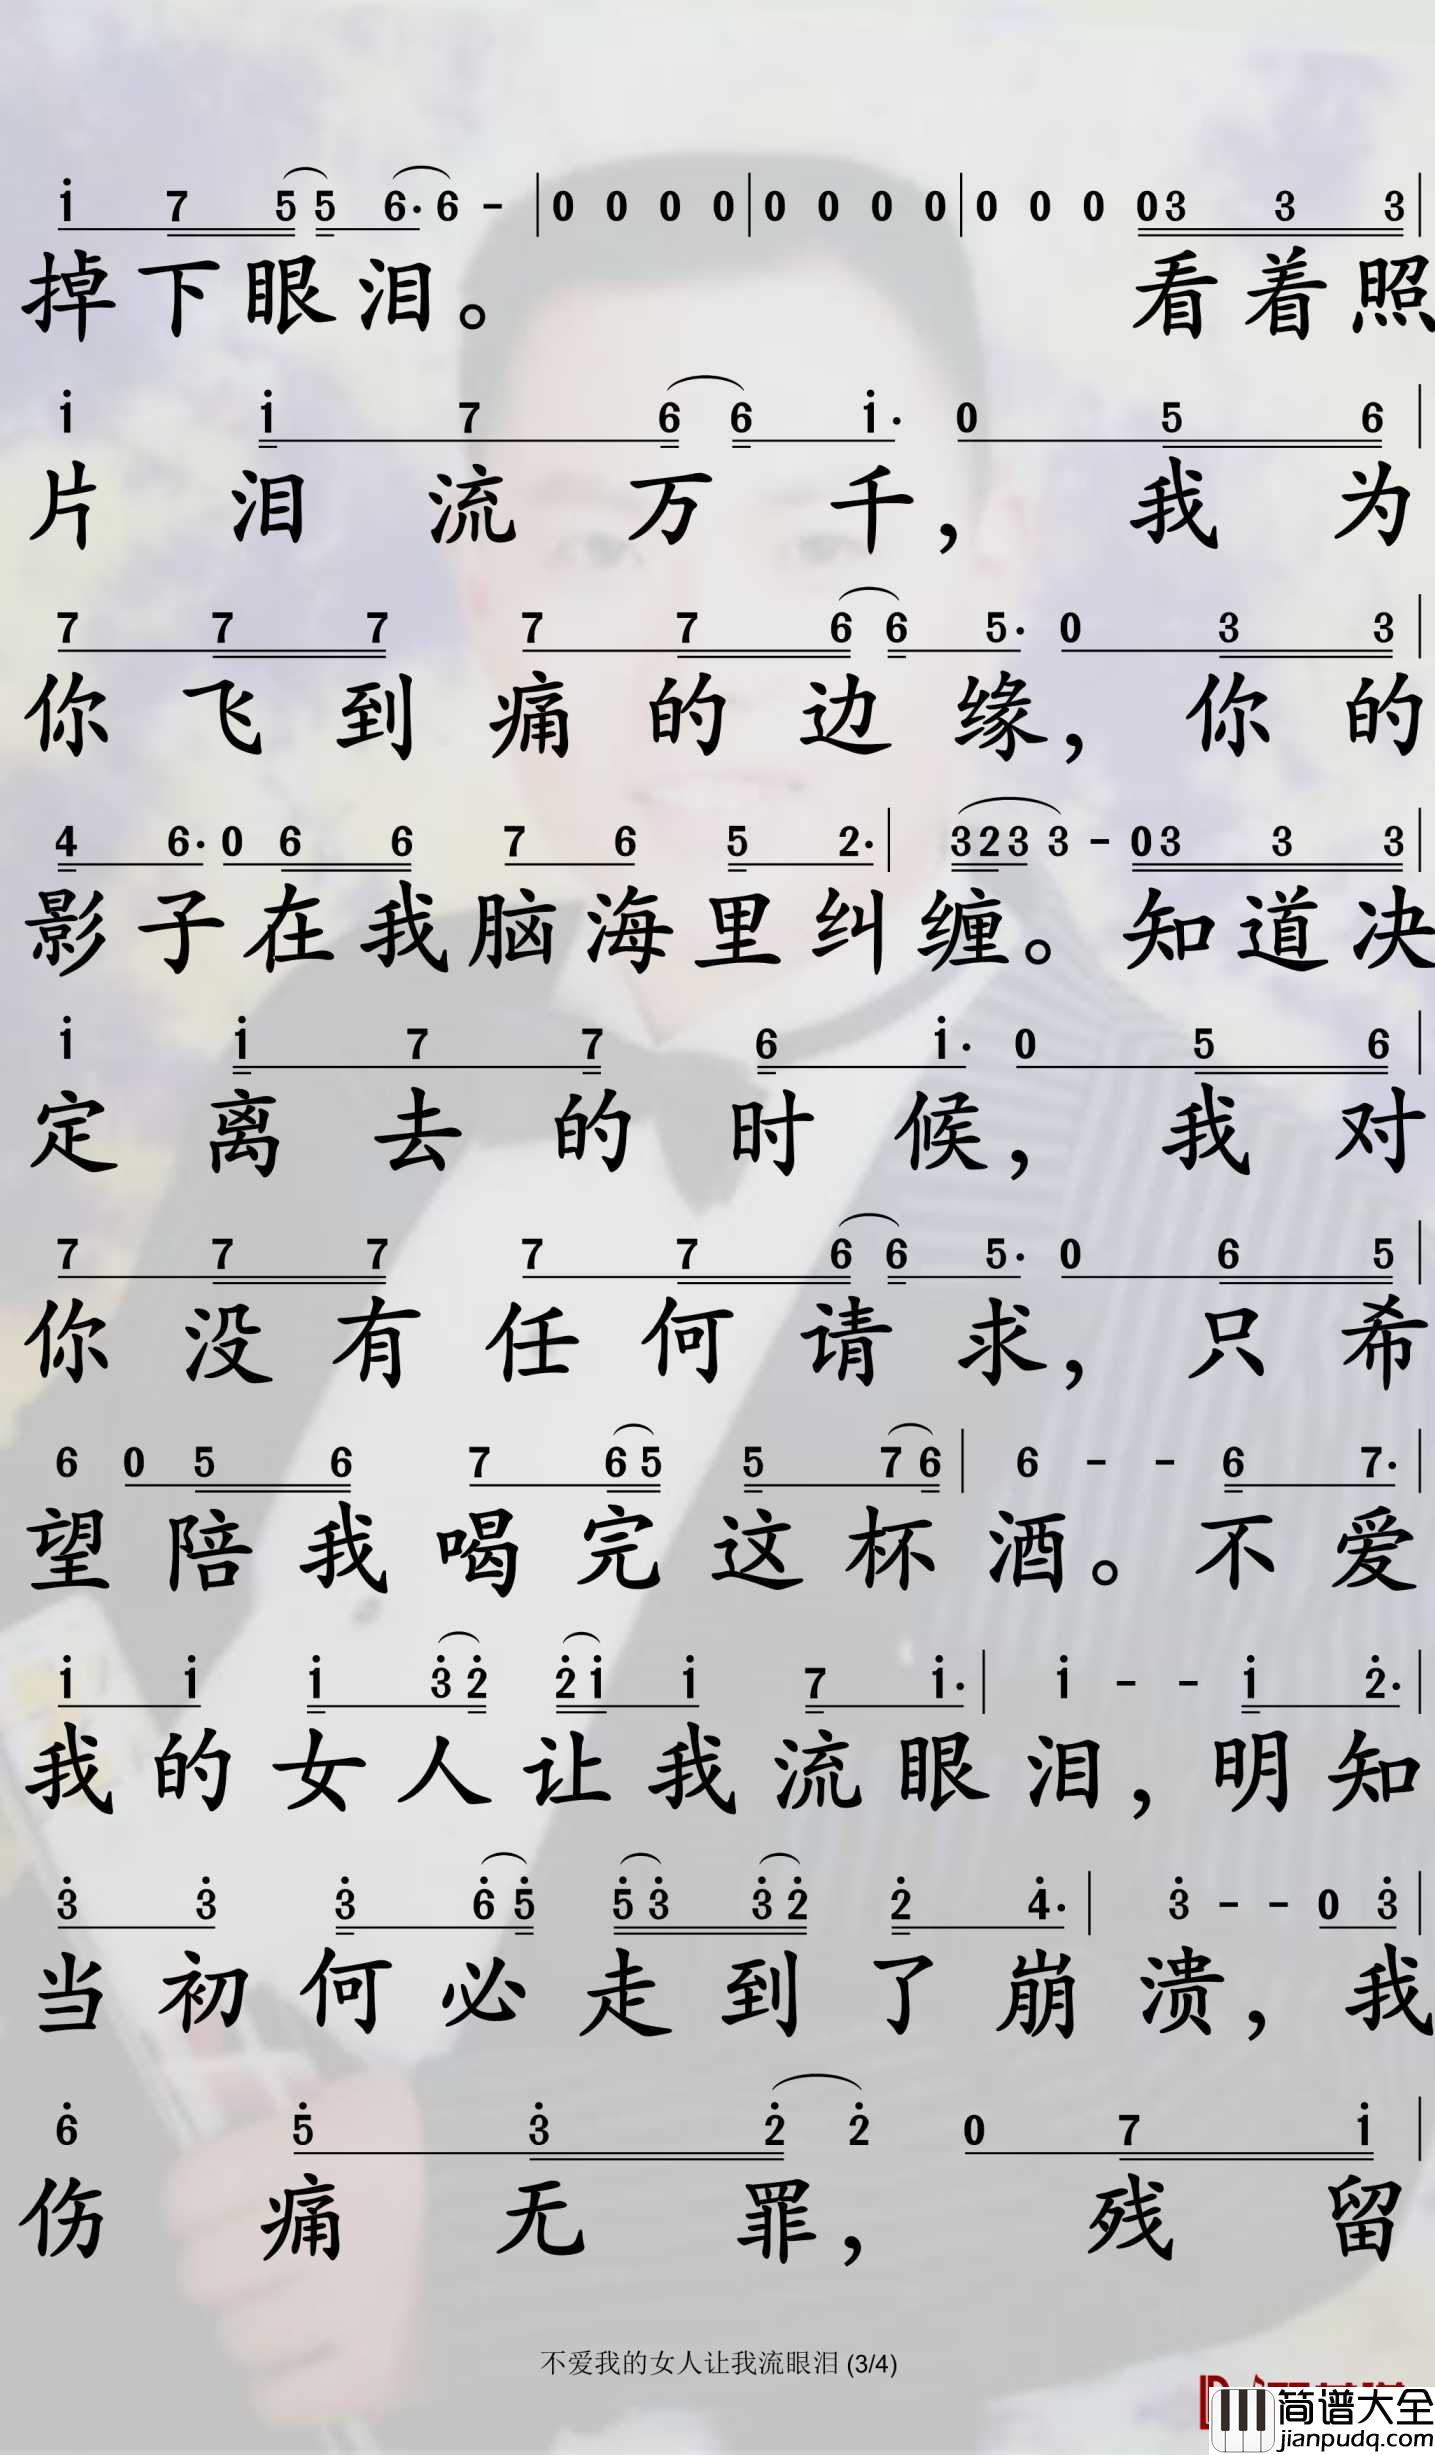 i 7 5 5 6. 6 - | 0 0 0 0 | 0 0 0 0 | 0 0 0 0 3 3 3 |
掉下眼泪。 看着照
i i 7 6 6 i. 0 5 6 |
片泪流万千,我为
7 7 7 7 7 6 6 5. 0 3 3 |
你飞到痛的边缘,你的
4 6. 0 6 6 7 6 5 2. | 3 2 3 3 - 0 3 3 3 |
影子在我脑海里纠缠。知道决
i i 7 7 6 i. 0 5 6 |
定离去的时候,我对
7 7 7 7 7 6 6 5. 0 6 5 |
你没有任何请求,只希
6 0 5 6 7 6 5 5 7 6 | 6 - - 6 7. |
望陪我喝完这杯酒。不爱
i i i 3 2 2 i i 7 i. | i - - i 2. |
我的女人让我流眼泪,明知
3 3 3 6 5 5 3 3 2 2 4. | 3 - - 0 3 |
当初何必走到了崩溃,我
6 5 3 2 2 0 7 i |
伤痛无罪,残留
不爱我的女人让我流眼泪 (3/4)
简谱大全
jianpudq.com